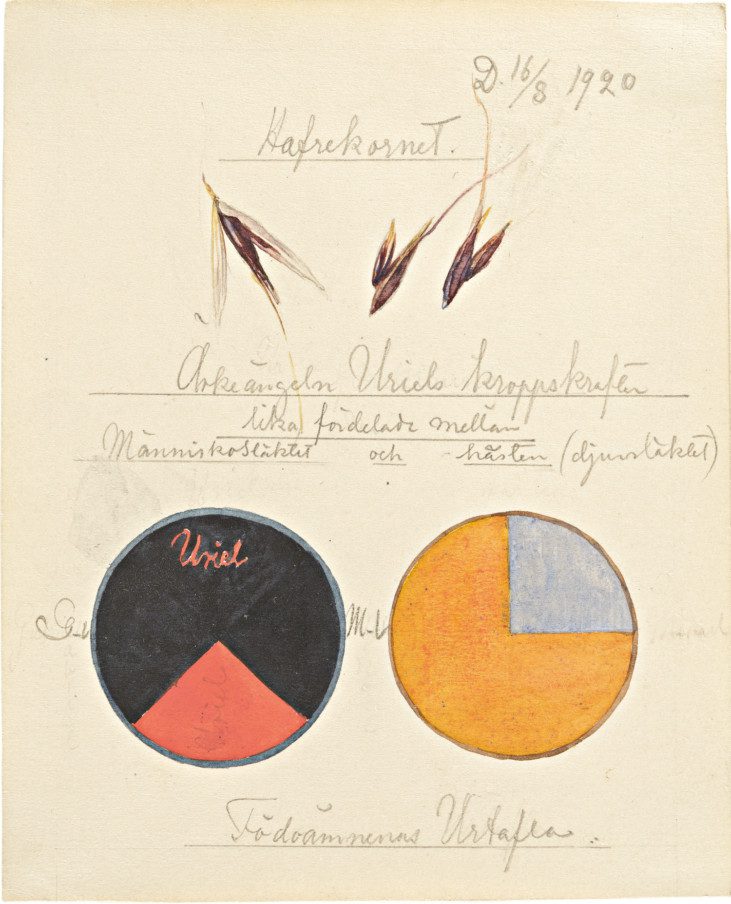 D. 16/8 1920
Hafrekornet.
Ärkeängeln Uriels kroppskrafter
lika fördelade mellan
Människosläktet och hästen (djursläktet)
Uriel
M-
Uriel
Födoämnenas Urtafla.